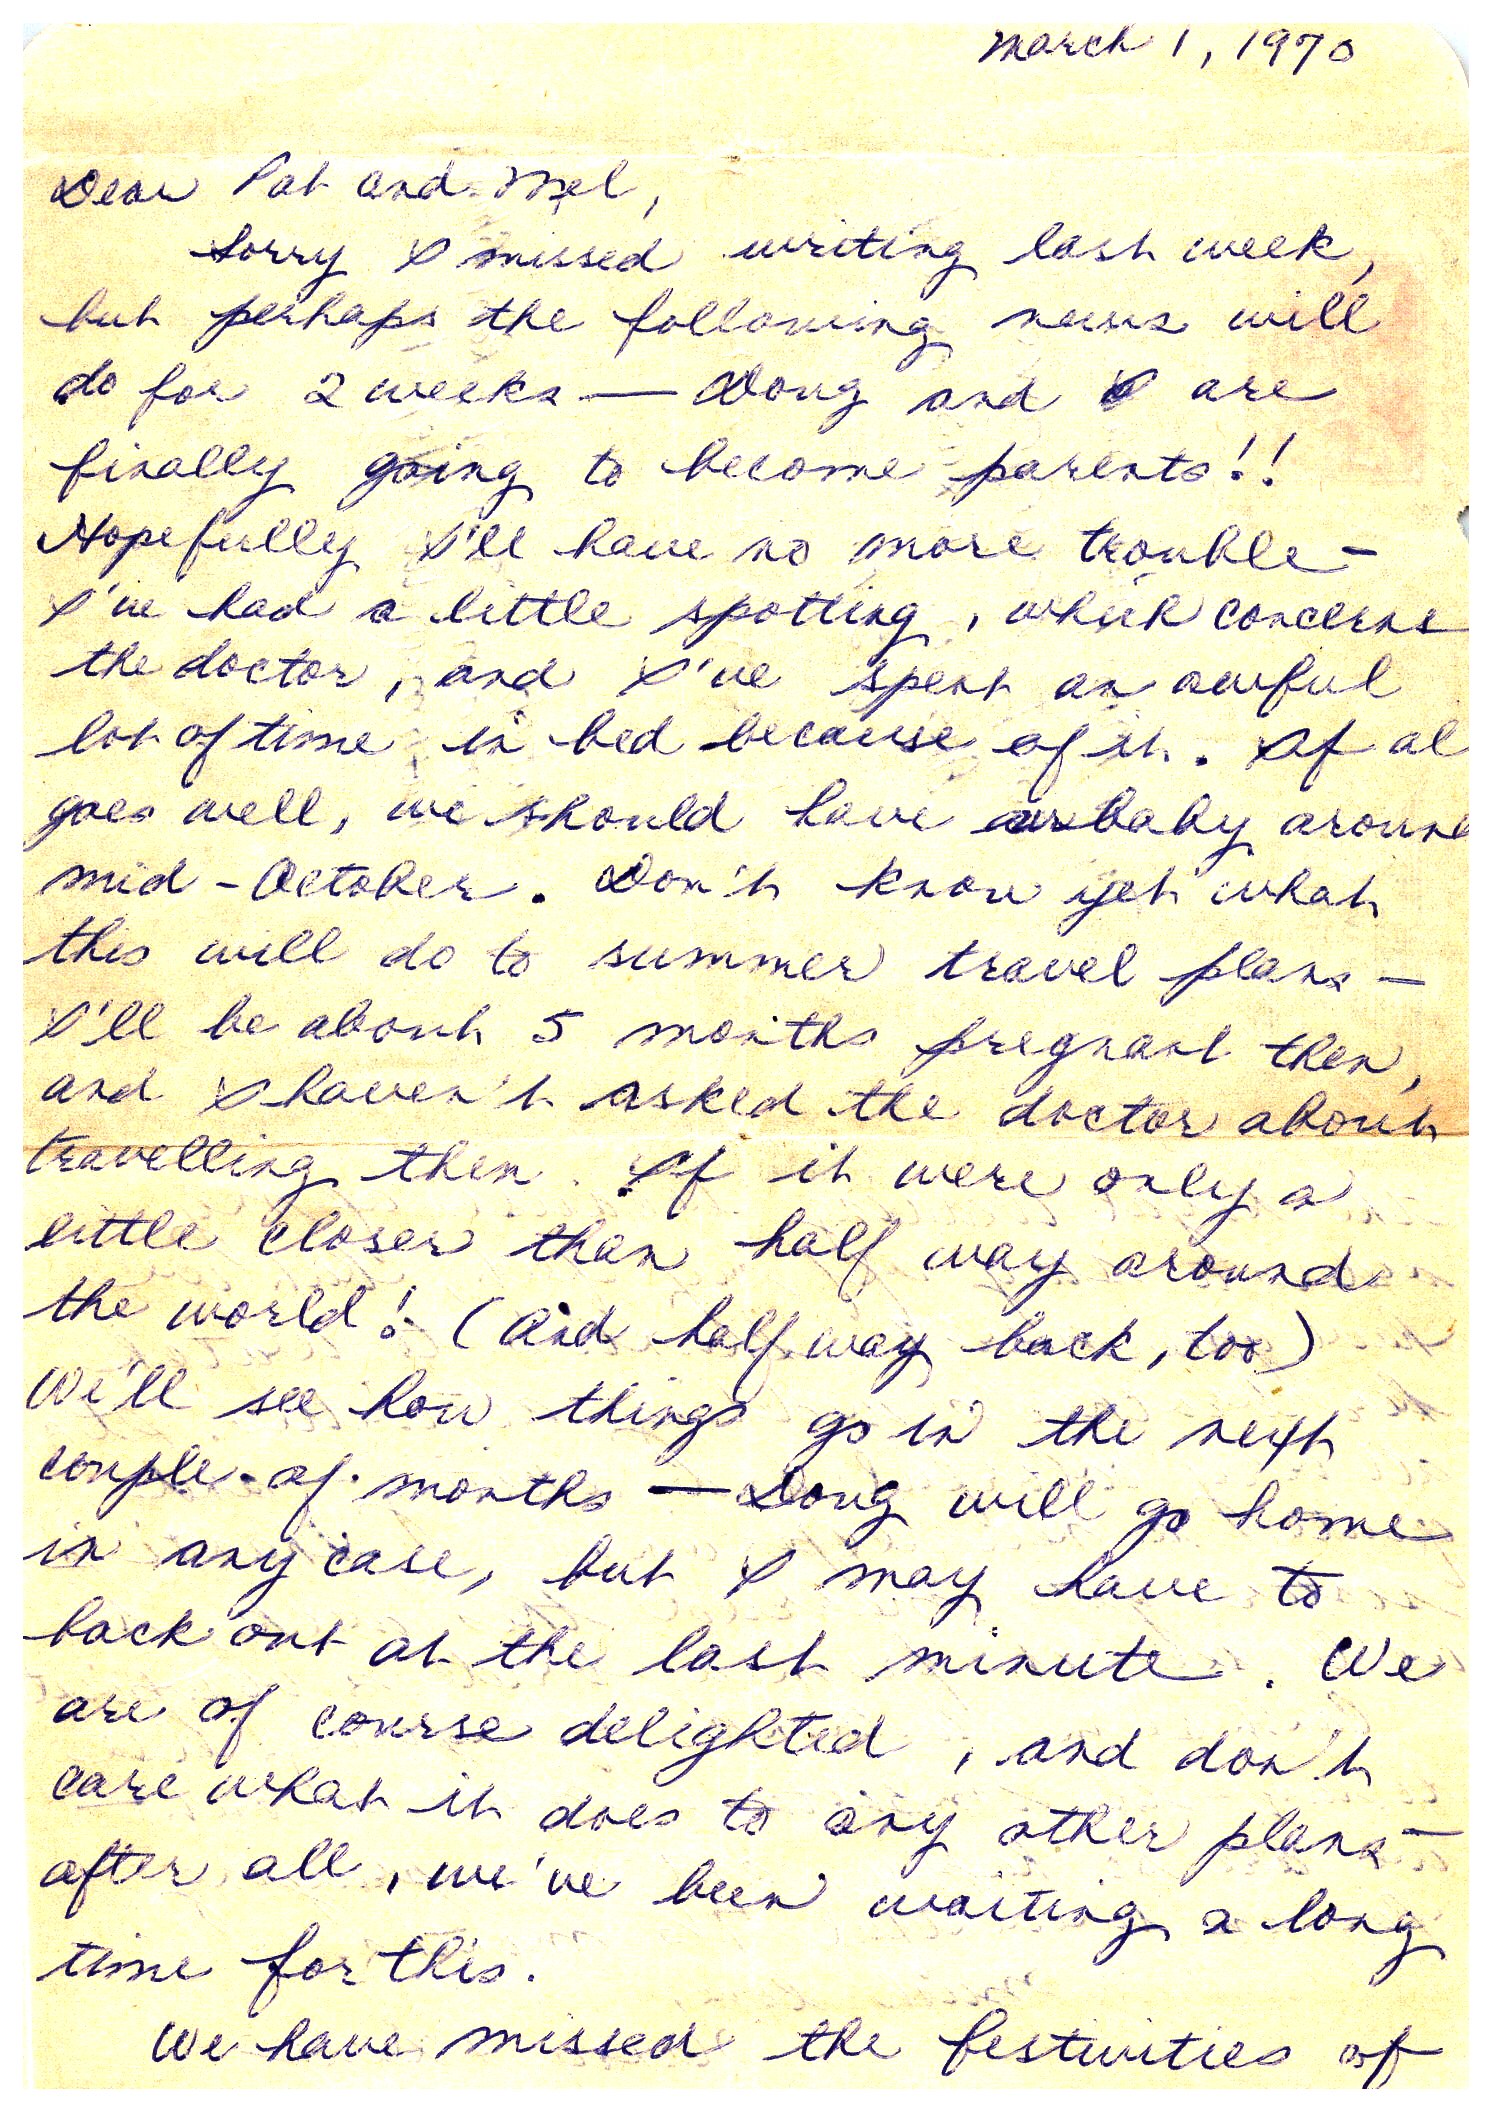 March 1, 1970
Dear Pat and Mel,
Sorry I missed writing last week,
but perhaps the following news will
do for 2 weeks — Doug and I are
finally going to become parents!!
Hopefully I'll have no more trouble -
I've had a little spotting, which concerns
the doctor, and I've spent an awful
lot of time in bed because of it. If al
goes well, we should have our baby aroun
mid-October. Don't know yet what
this will do to summer travel plans —
I'll be about 5 months pregnant then,
and I haven't asked the doctor about
travelling then. If it were only a
little closer than half way around
the world! (And half way back, too)
We'll see how things go in the next
couple-of-months — Doug will go home
in any case, but I may have to
back out at the last minute. We
are of course delighted, and don't
care what it does to any other plans —
after all, we've been waiting a long
time for this.
We have missed the festivities of